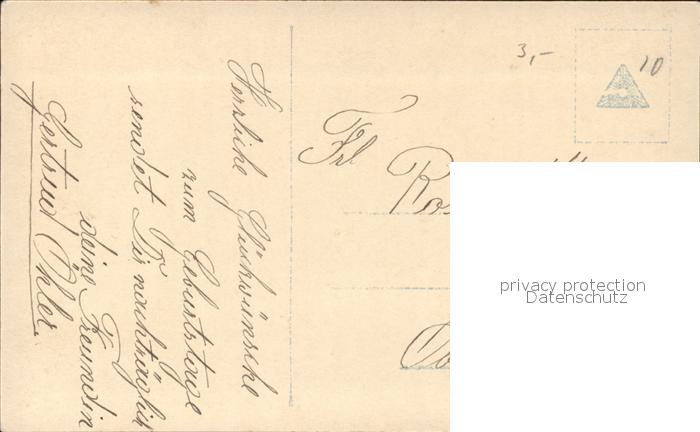 Herzliche Glückwünsche
zum Geburtstage
sendet Dir nachträglich
deine Freundin
Gertrud Öhler.
3,-
10
Frl
privacy protection
Datenschutz